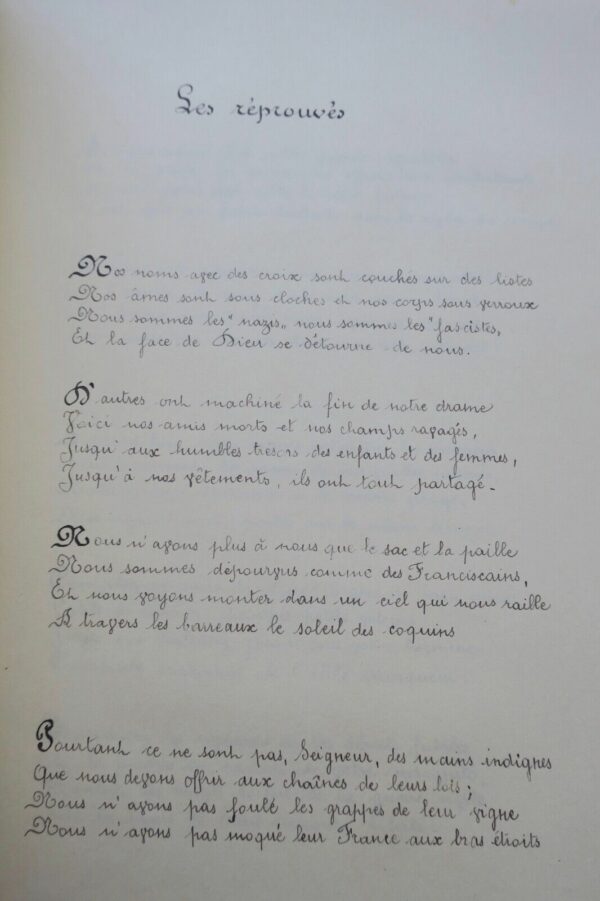 Les réprouvés
Nos noms avec des croix sont couchés sur des listes
Nos âmes sont sous cloches et nos corps sous verroux
Nous sommes les "nazis" nous sommes les "fascistes,
Et la face de Dieu se détourne de nous.
D'autres ont machiné la fin de notre drame
Voici nos amis morts et nos champs ravagés,
Jusqu'aux humbles trésors des enfants et des femmes,
Jusqu'à nos vêtements, ils ont tout partagé.
Nous n'avons plus à nous que le sac et la paille
Nous sommes dépourvus comme des Franciscains,
Et nous voyons monter dans un ciel qui nous raille
A travers les barreaux le soleil des coquins
Pourtant ce ne sont pas, Seigneur, des mains indignes
Que nous devons offrir aux chaînes de leurs lois ;
Nous n'avons pas foulé les grappes de leur vigne
Nous n'avons pas moqué leur France aux bras étroits